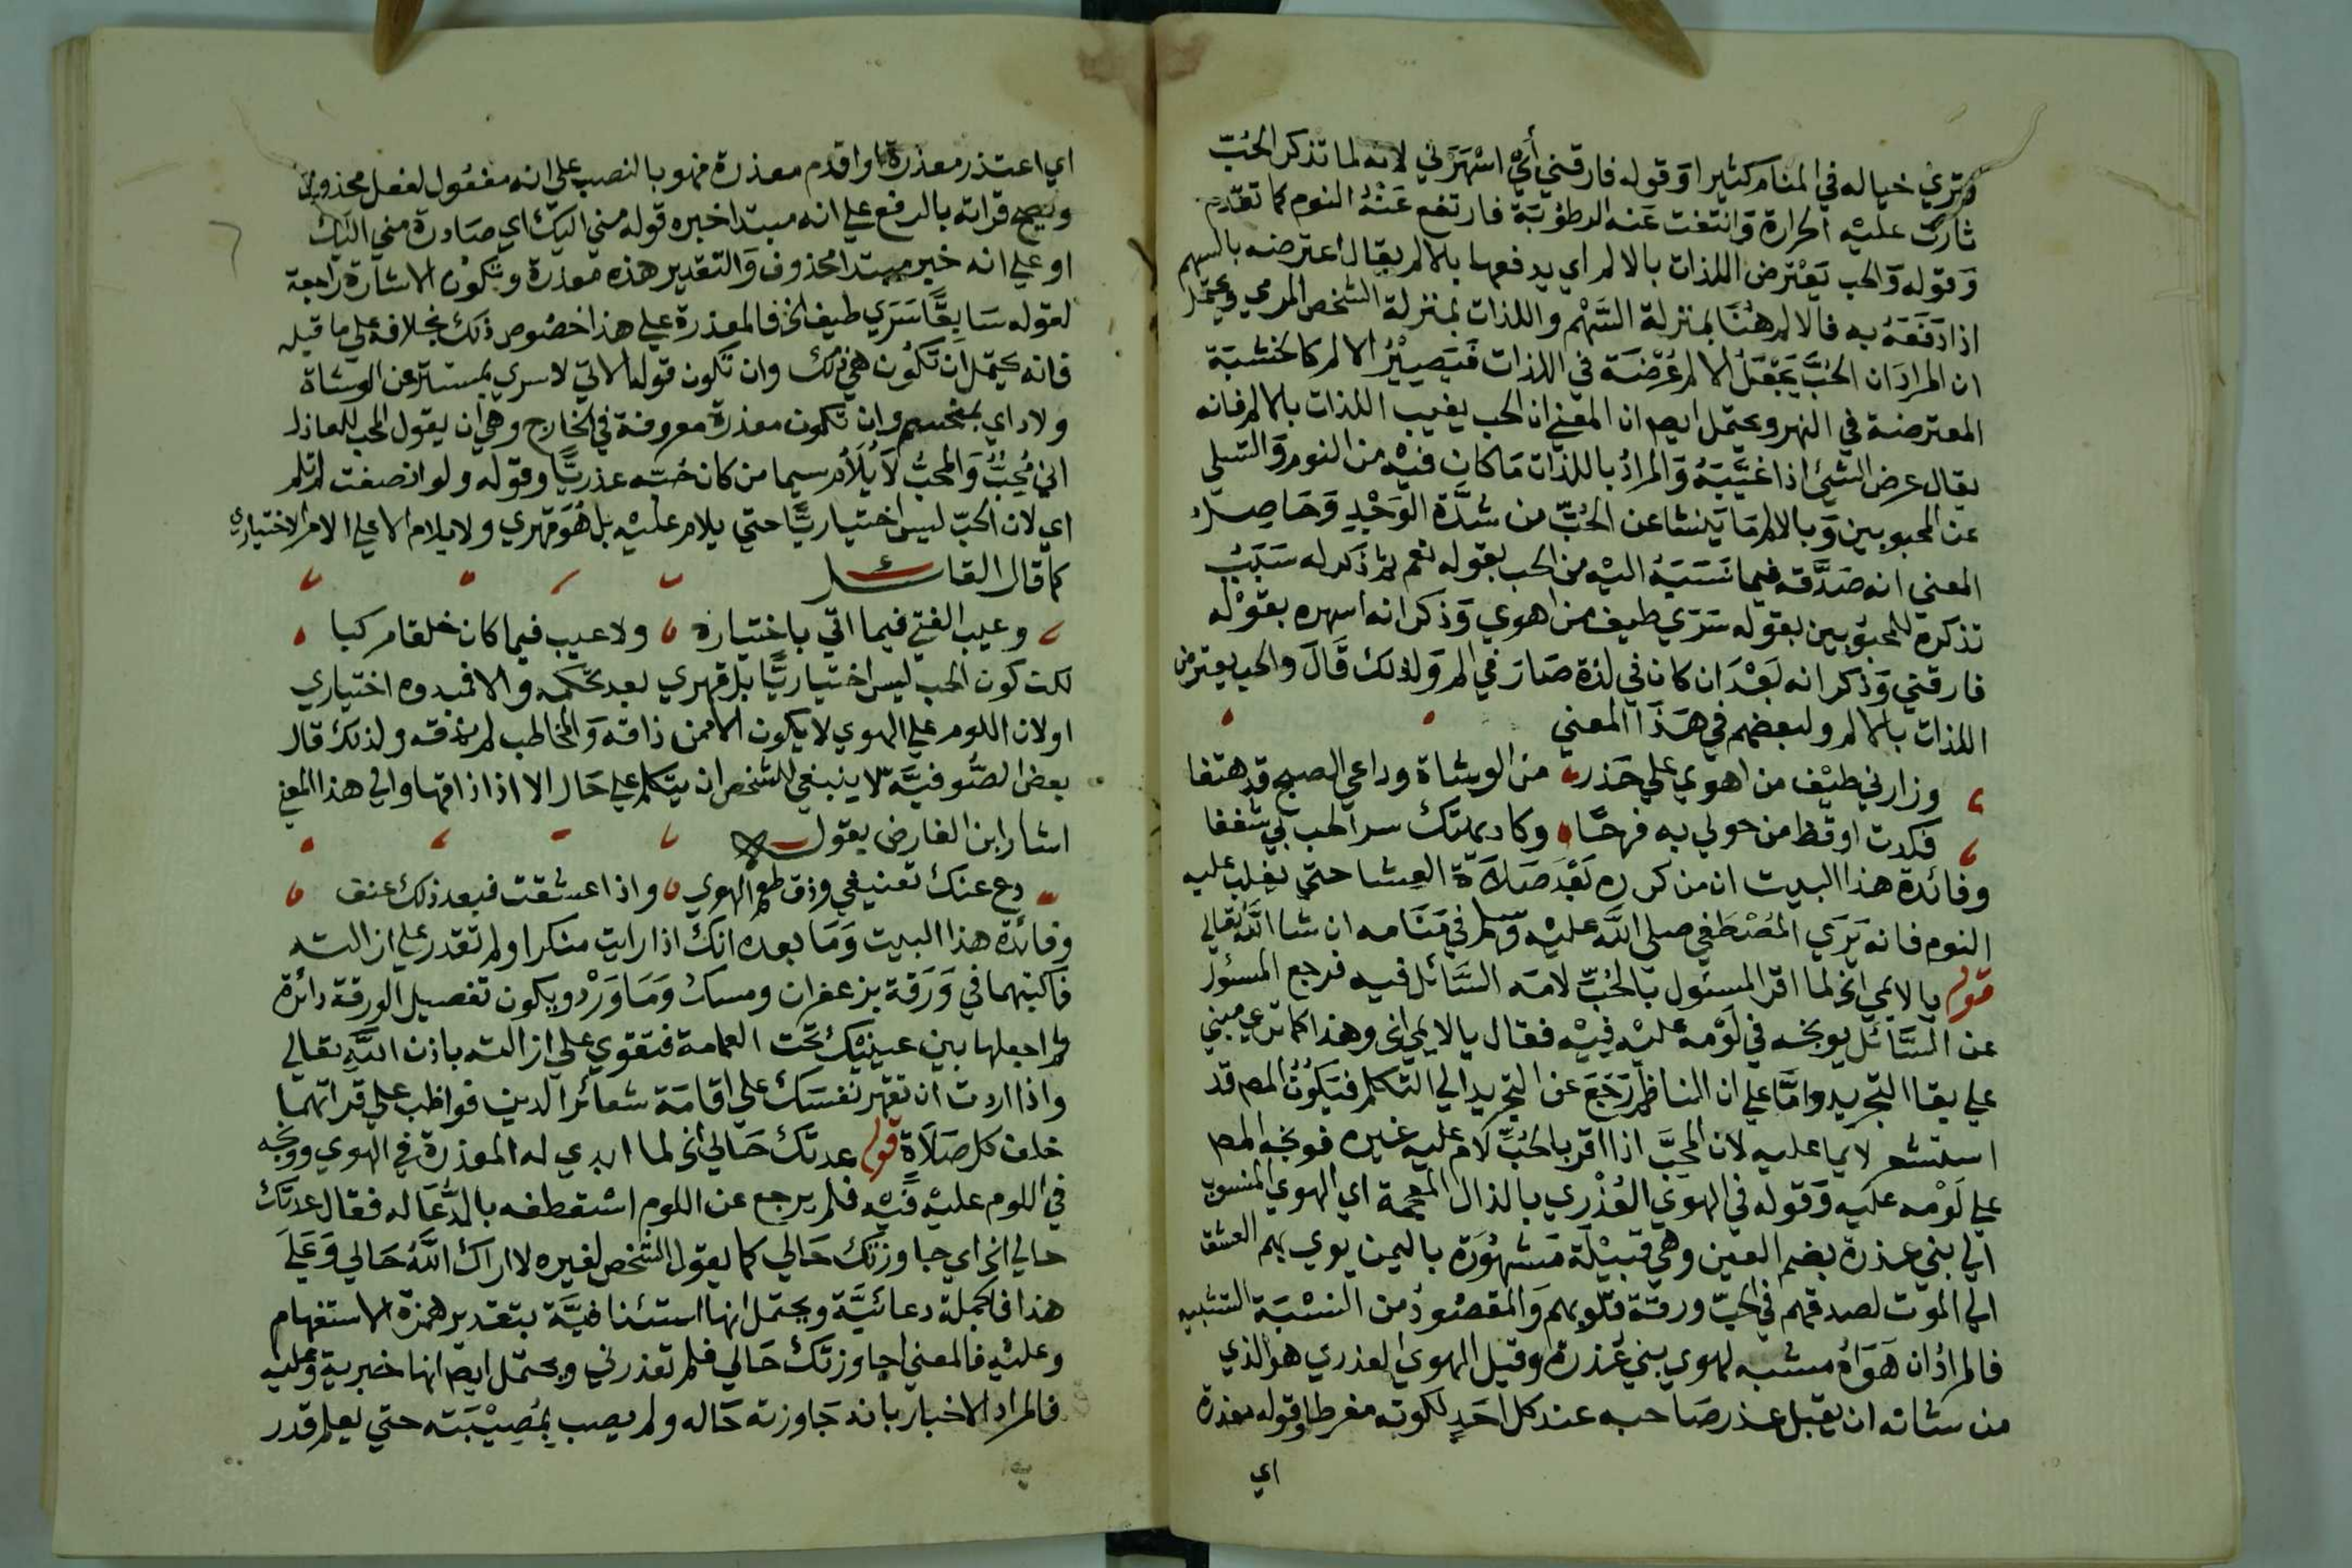 وتري خياله في المنام كثيرا وقوله فارقني أي اسهرني لانه لما تذكر الحب
ثارت عليه الحرارة وانتفت عنه الرطوبة فارتفع عنه النوم كما تقدم
وقوله والحب يعترض اللذات بالالم اي يدفعها بالالم يقال اعترضه بالسهم
اذا دفعه به فالالم هنا بمنزلة السهم واللذات بمنزلة الشخص المرمي ويحتمل
ان المراد ان الحب يجعل الالم عرضة في اللذات فيصير الالم كالخشبة
المعترضة في النهر ويحتمل ايضا ان المعني ان الحب يغيب اللذات بالالم فانه
يقال عرض الشئ اذا غيبه والمراد باللذات ما كان فيه من النوم والتسلي
عن المحبوبين وبالالم ما ينشا عن الحب من شدة الوجد وحاصل
المعني انه صدقه فيما نسبه اليه من الحب بقوله نعم ثم ذكر له سبب
تذكره للمحبوبين بقوله سري طيف من اهوي وذكر انه اسهره بقوله
فارقني وذكر انه بعد ان كان في لذة صار في الم ولذلك قال والحب يعترض
اللذات بالالم ولبعضهم في هذا المعني
وزارني طيف من اهوي علي حذر من الوشاة وداعي الصبح قد هتفا
فكدت اوقظ من حولي به فرحا وكاد يهتك ستر الحب بي شغفا
وفائدة هذا البيت ان من كرره بعد صلاة العشا حتي يغلب عليه
النوم فانه يري المصطفي صلي الله عليه وسلم في منامه ان شا الله تعالي
قوله يا لايمي الخ لما اقر المسئول بالحب لامه السائل فيه فرجع المسئول
عن السائل يوبخه في لومه عليه فيه فقال يا لايمي الخ وهذا كما تري مبني
علي بقا التجريد واما علي ان الناظم رجع عن التجريد الي التكلم فيكون المصم قد
استشعر لايما عليه لان المحب اذا اقر بالحب لام عليه غيره فوبخه المصم
علي لومه عليه وقوله في الهوي العذري بالذال المعجمة اي الهوي المنسوب
الي بني عذرة بضم العين وهي قبيلة مشهورة باليمن يوي بهم العشق
الي الموت لصدقهم في الحب ورقة قلوبهم والمقصود من النسبة التشبيه
فالمراد ان هواه مشبه لهوي بني عذرة وقيل الهوي العذري هو الذي
من شانه ان يقبل عذر صاحبه عند كل احد لكونه مفرطا وقوله معذرة
اي
اي اعتذر معذرة او اقدم معذرة فهو بالنصب علي انه مفعول لفعل محذوف
ويصح قراته بالرفع علي انه مبتدا خبره قوله مني اليك اي صادرة مني اليك
او علي انه خبر مبتدا محذوف والتقدير هذه معذرة وتكون الاشارة راجعة
لقوله سابقا سري طيف الخ فالمعذرة علي هذا خصوص ذلك بخلافه علي ما قبله
فانه يحتمل ان تكون هي ذلك وان تكون قوله الاتي لاسري بمستتر عن الوشاة
ولا داي بمنحسم وان تكون معذرة معروفة في الخارج وهي ان يقول المحب للعاذل
اني محب والمحب لا يلام سيما من كان حبه عذريا وقوله ولو انصفت لم تلم
اي لان الحب ليس اختياريا حتي يلام عليه بل هو قهري ولا يلام الا علي الامر الاختياري
كما قال القائل
وعيب الفتي فيما اتي باختياره ولا عيب فيما كان خلقا مركبا
لكن كون الحب ليس اختياريا بل قهري بعد تحكمه والا فمبدوه اختياري
او لان اللوم علي الهوي لا يكون الا ممن ذاقه والمخاطب لم يذقه ولذلك قال
بعض الصوفية لا ينبغي للشخص ان يتكلم علي حال الا اذا ذاقها والي هذا المعني
اشار ابن الفارض بقوله
دع عنك تعنيفي وذق طعم الهوي واذا عشقت فبعد ذلك عنف
وفائدة هذا البيت وما بعده انك اذا رايت منكرا ولم تقدر علي ازالته
فاكتبهما في ورقة بزعفران ومسك وماورد ويكون تفصيل الورقة دائرة
ثم اجعلها بين عينيك تحت العمامة فتقوي علي ازالته باذن الله تعالي
واذا اردت ان تقهر نفسك علي اقامة شعائر الدين فواظب علي قراتهما
خلف كل صلاة قوله عدتك حالي الخ لما ابدي له المعذرة في الهوي ووبخه
في اللوم عليه فيه فلم يرجع عن اللوم استعطفه بالدعا له فقال عدتك
حالي الخ اي جاوزتك حالي كما يقول الشخص لغيره لا اراك الله حالي وعلي
هذا فالجملة دعائية ويحتمل انها استئنافية بتقدير همزة الاستفهام
وعليه فالمعني اجاوزتك حالي فلم تعذرني ويحتمل ايضا انها خبرية وعليه
فالمراد الاخبار بانه جاوزته حاله ولم يصب بمصيبته حتي يعلم قدر